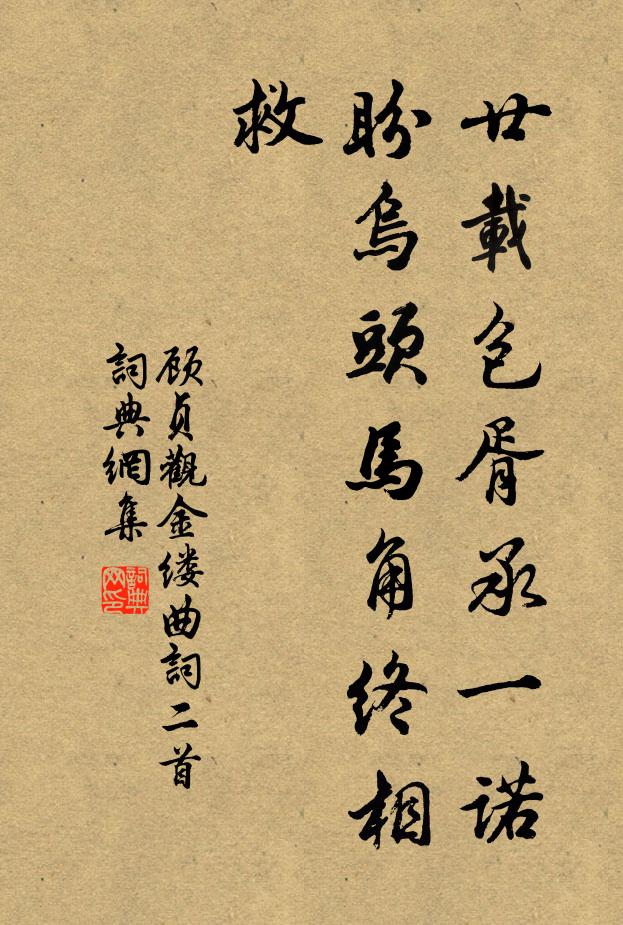 廿載包胥承一诺
盼烏頭馬角终相
救
顾贞觀金缕曲詞二首
詞典網集
詞典
网印